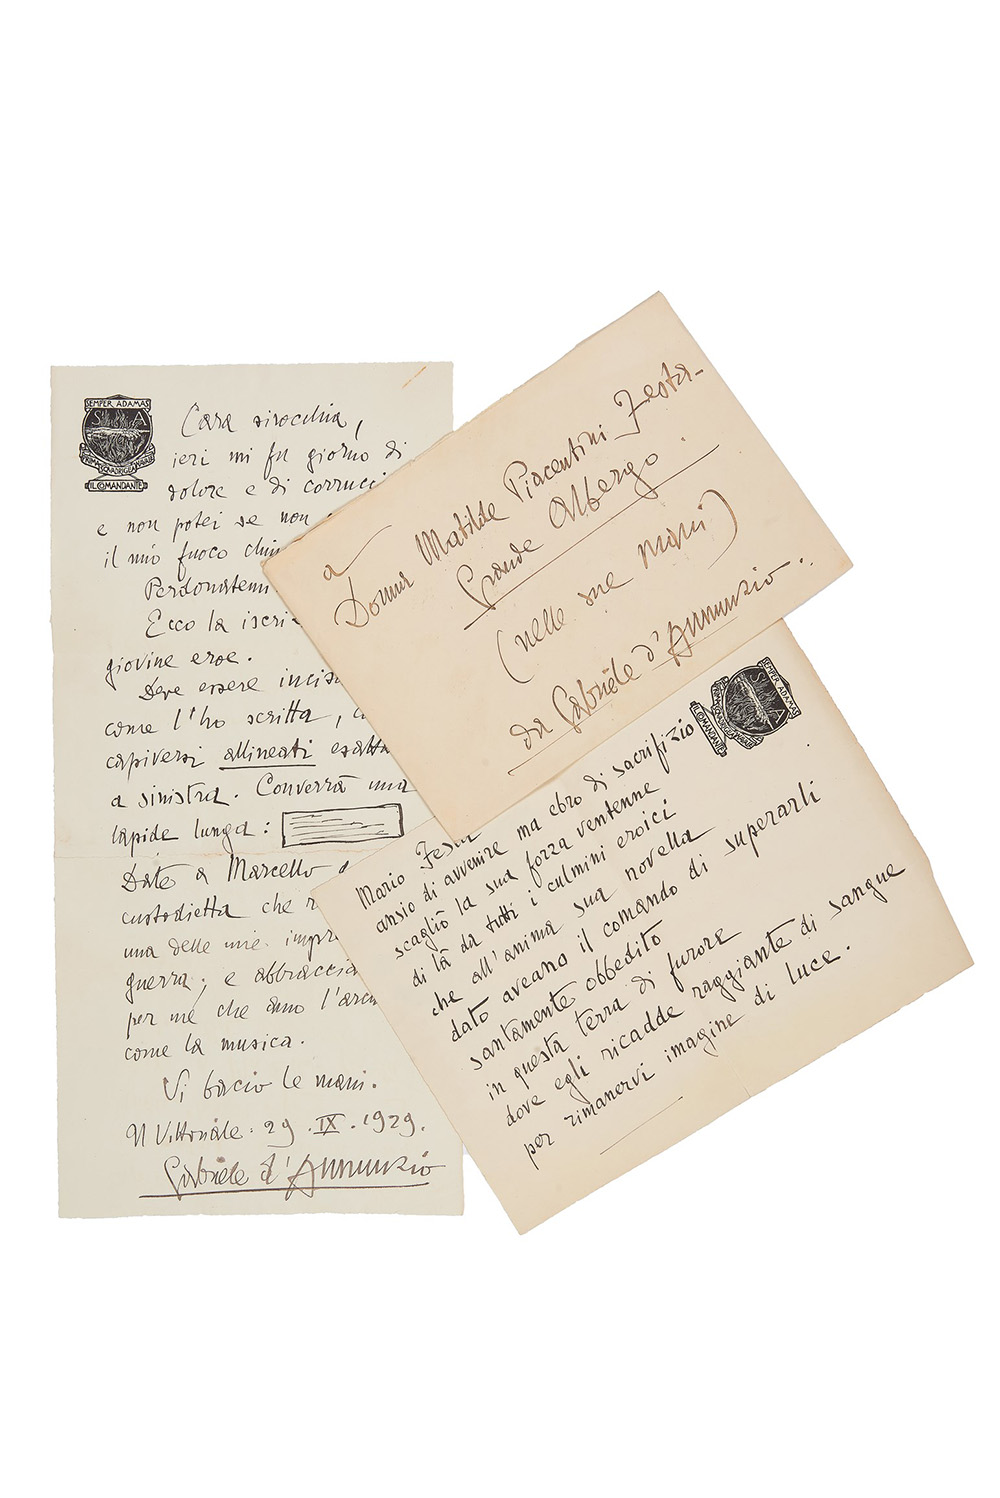 SEMPER ADAMAS
S A
IL COMANDANTE
Cara sirocchia,
ieri mi fu giorno di
dolore e di corrucci
e non potei se non
il mio fuoco
Ecco la
giovine eroe.
Deve essere
come l'ho scritta,
capiversi allineati
a sinistra. Converrà una
lapide lunga:
Date a Marcello
custodietta che
una delle mie
guerra; e
per me che amo
come la musica.
Vi bacio le mani.
Il Vittoriale. 29. IX. 1929.
Gabriele d'Annunzio
a
Donna Matilde Piacentini Festa-
Grande Albergo
(nelle sue mani)
da Gabriele d'Annunzio.
SEMPER ADAMAS
S A
IL COMANDANTE
Mario
ansio di avvenire ma ebro di sacrifizio
scagliò la sua forza ventenne
di là da tutti i culmini eroici
che all'anima sua novella
dato aveano il comando di superarli
santamente obbedito
in questa terra di furore
dove egli ricadde raggiante di sangue
per rimanervi imagine di luce.